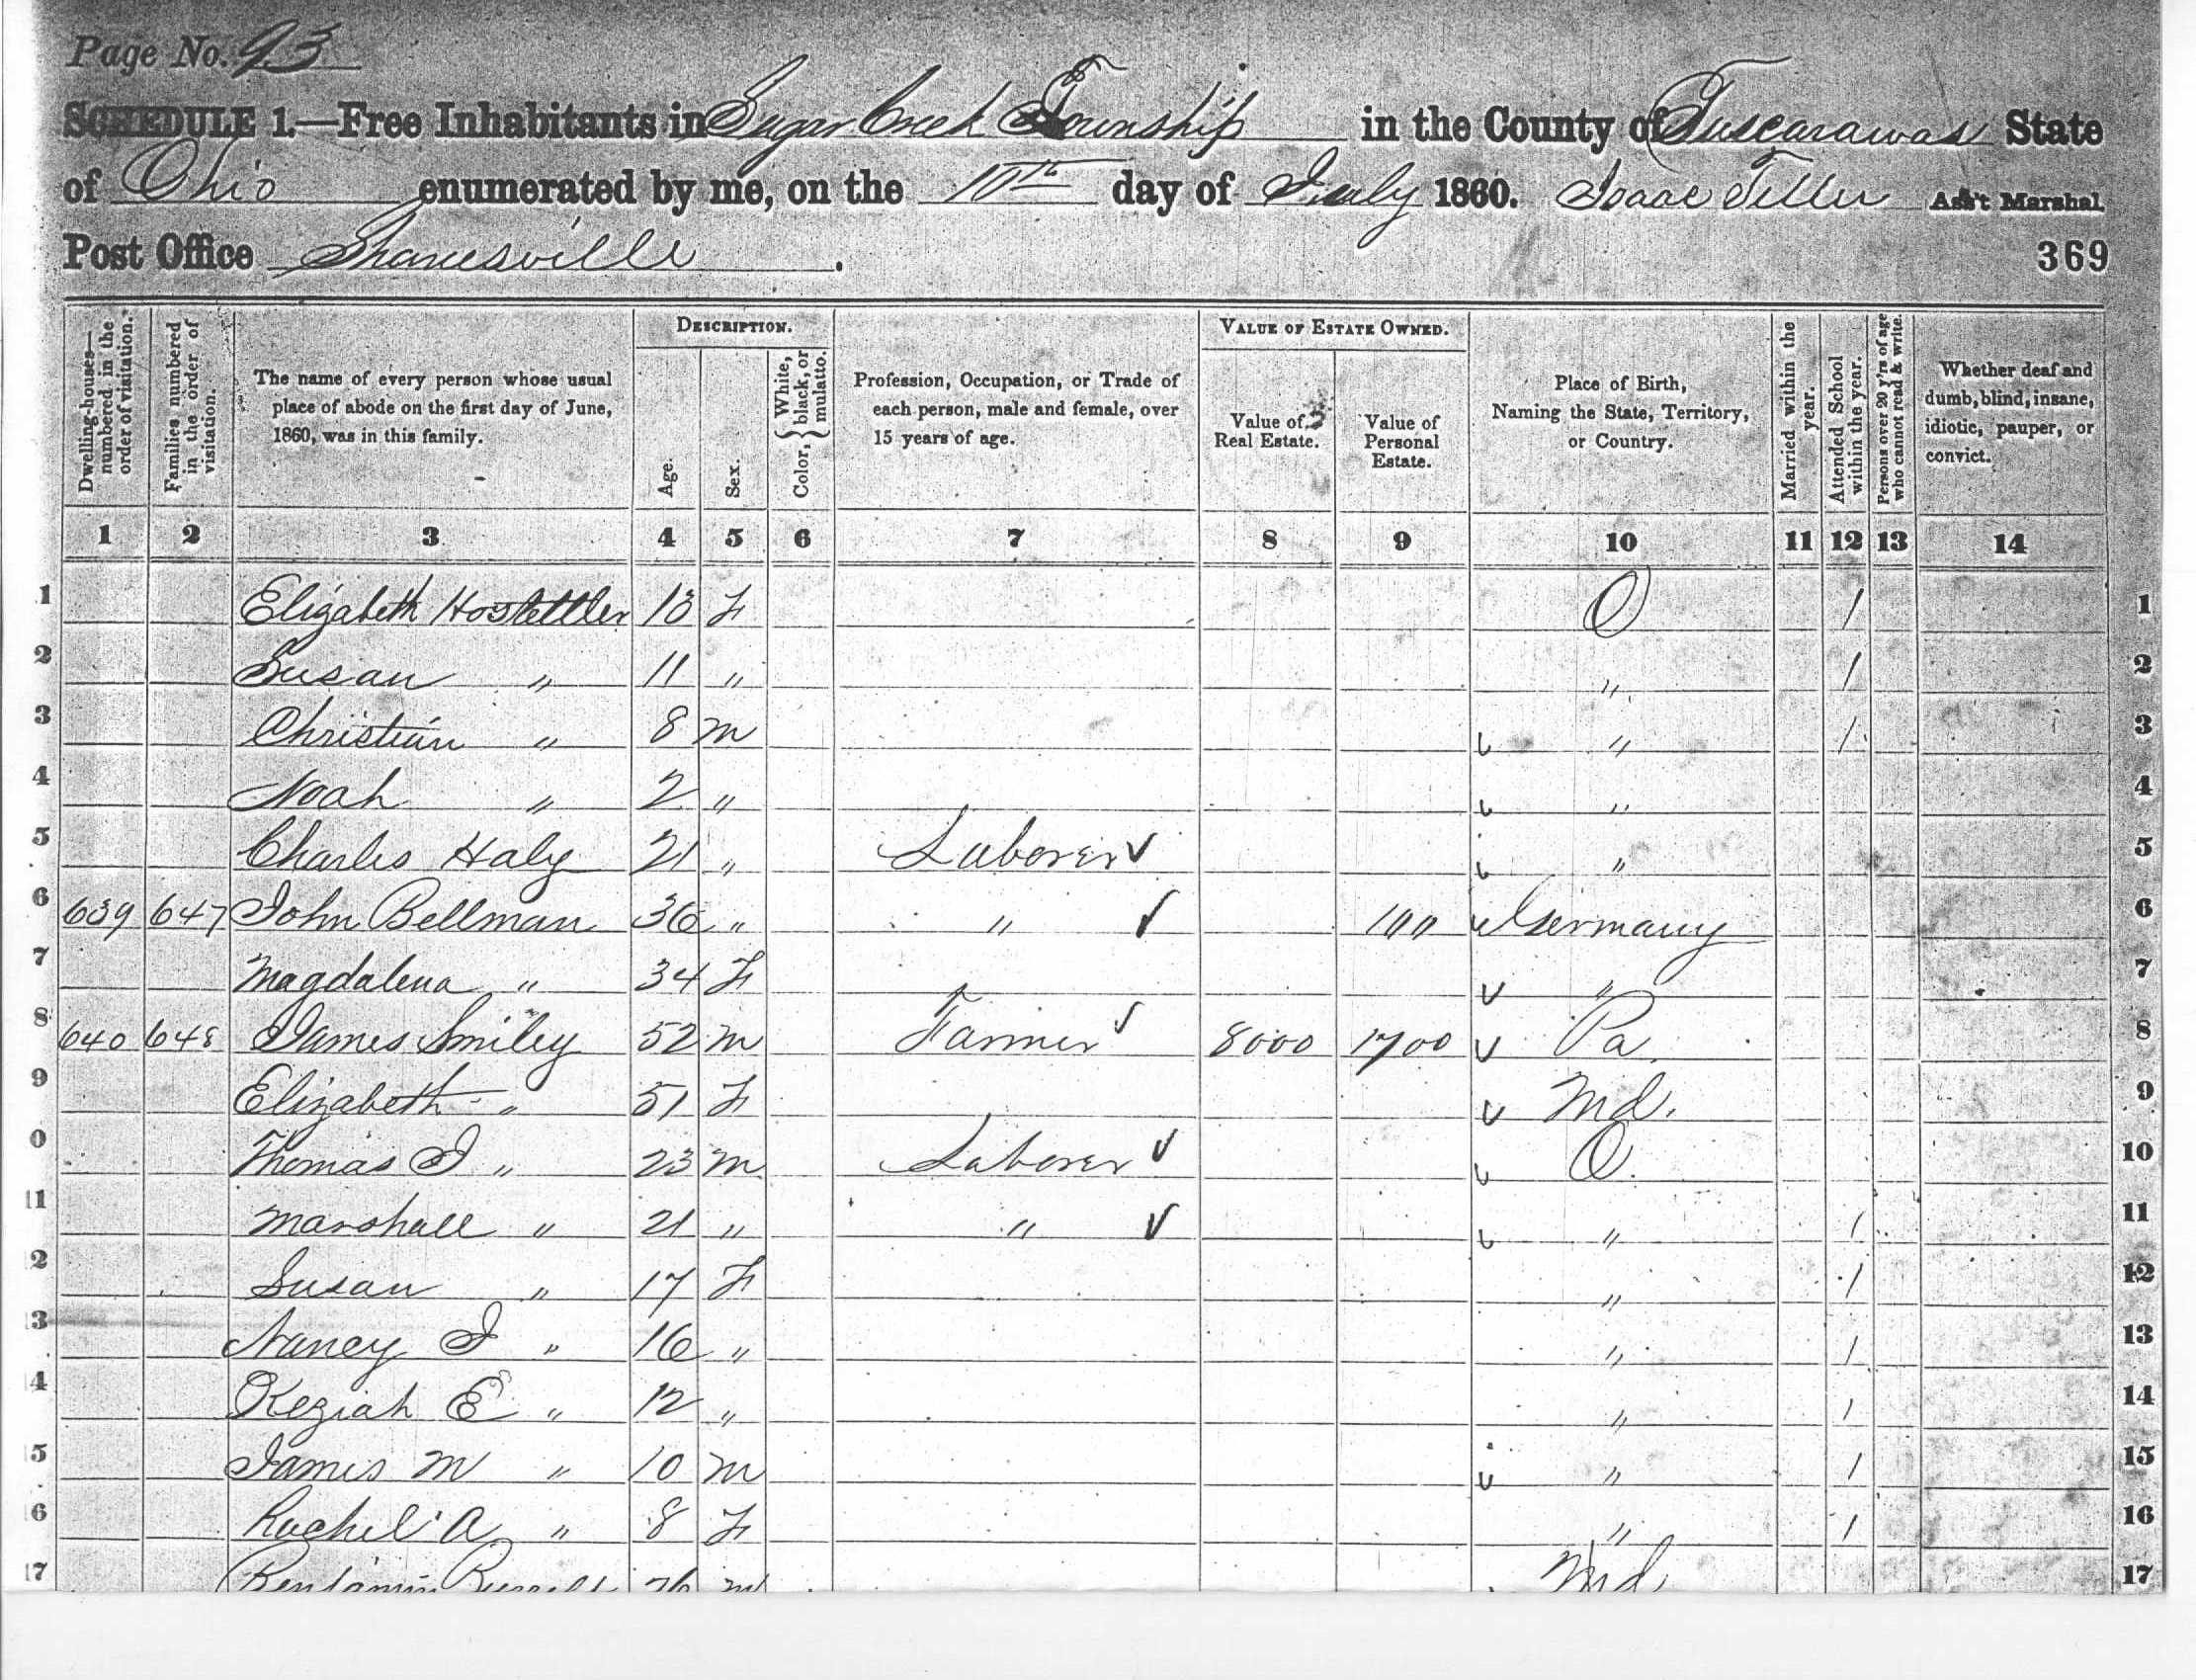 Page No. 93
SCHEDULE 1.—Free Inhabitants in Sugar Creek Township in the County of Tuscarawas State
of Ohio enumerated by me, on the 10th day of July 1860. Isaac Teller Ass't Marshal.
Post Office Shanesville . 369
Dwelling-houses—numbered in the order of visitation.
Families numbered in the order of visitation.
The name of every person whose usual place of abode on the first day of June, 1860, was in this family.
DESCRIPTION.
Age.
Sex.
Color, { White, black, or mulatto.
Profession, Occupation, or Trade of each person, male and female, over 15 years of age.
VALUE OF ESTATE OWNED.
Value of Real Estate.
Value of Personal Estate.
Place of Birth, Naming the State, Territory, or Country.
Married within the year.
Attended School within the year.
Persons over 20 y'rs of age who cannot read & write.
Whether deaf and dumb, blind, insane, idiotic, pauper, or convict.
1 2 3 4 5 6 7 8 9 10 11 12 13 14
1 Elizabeth Hostettler 13 F O / 1
2 Susan " 11 " " / 2
3 Christian " 8 m " / 3
4 Noah " 2 " " 4
5 Charles Haly 21 " Laborer ✓ " 5
6 639 647 John Bellman 36 " " ✓ 100 Germany 6
7 Magdalena " 34 F " 7
8 640 648 James Smiley 52 m Farmer ✓ 8000 1700 Pa. 8
9 Elizabeth " 51 F Md. 9
0 Thomas I " 23 m Laborer ✓ O. 10
11 Marshall " 21 " " ✓ " / 11
2 Susan " 17 F " / 12
13 Nancy I " 16 " " / 13
4 Keziah E " 12 " " / 14
15 James M " 10 m " / 15
6 Rachel A " 8 F " / 16
17 Benjamin 76 m Md 17